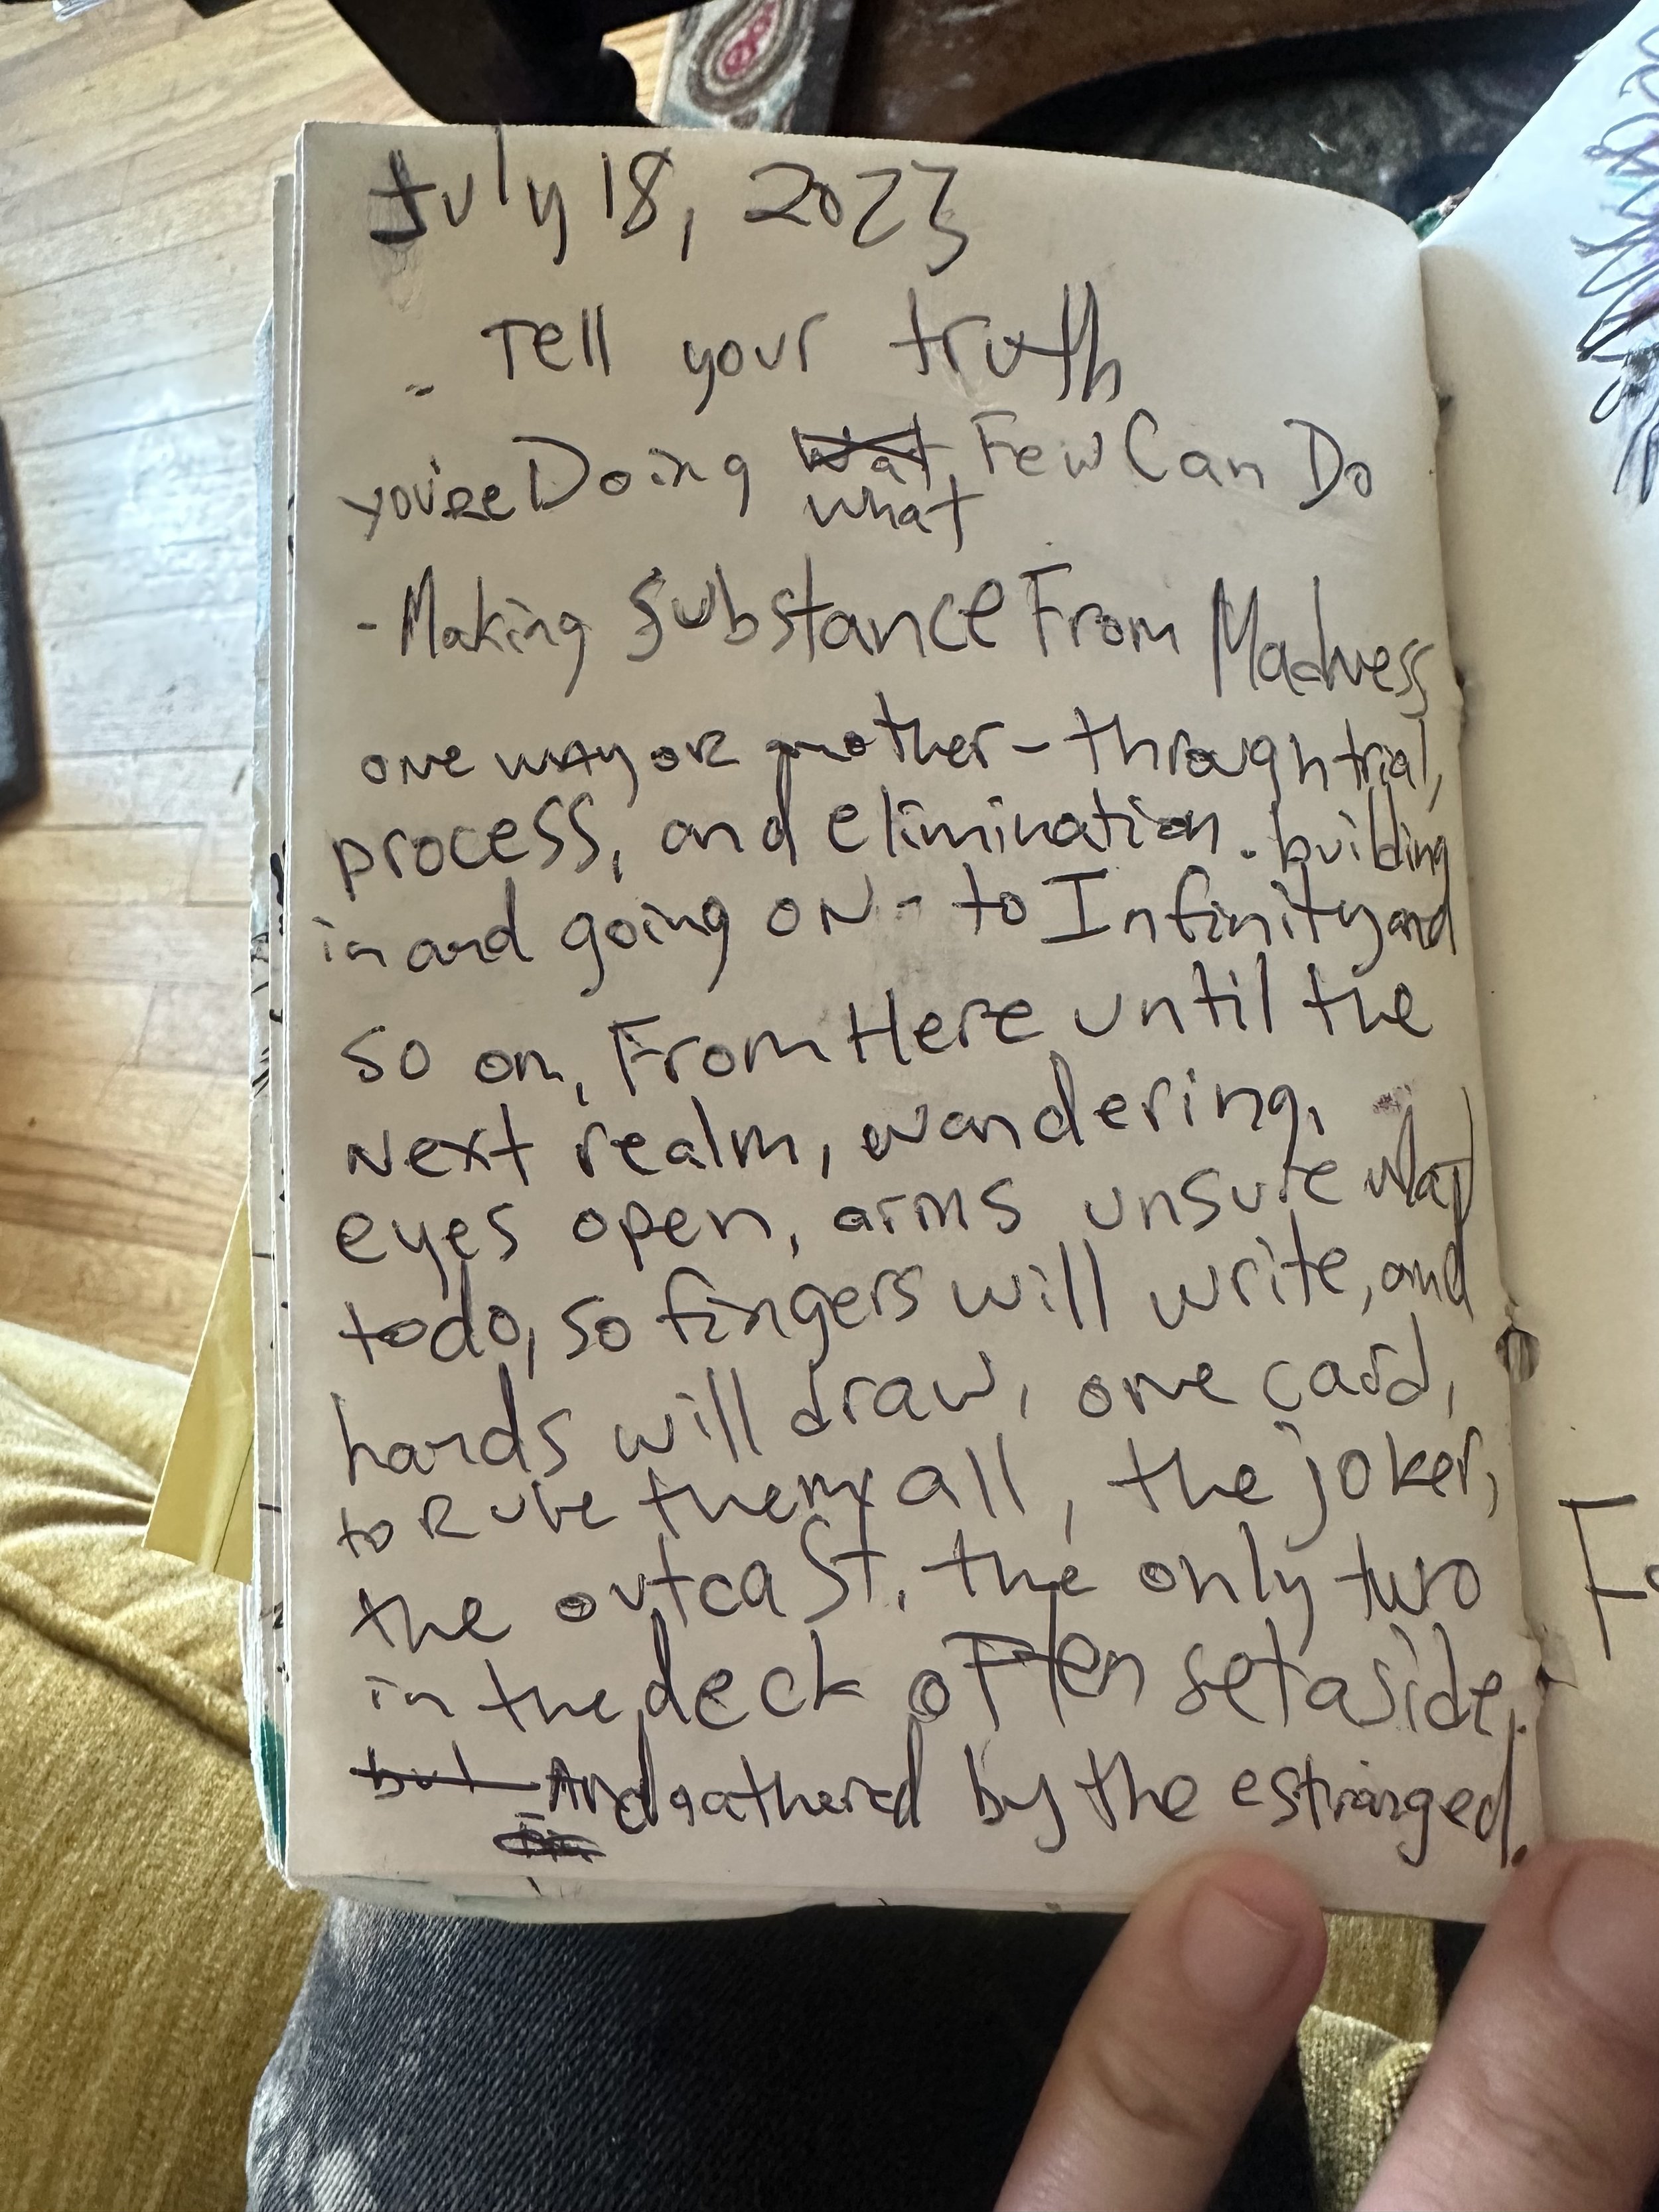 July 18, 2023
- Tell your truth
you're Doing wat what Few Can Do
- Making Substance From Madness
one way or another - through trial,
process, and elimination. building
in and going on - to Infinity and
so on, From Here until the
Next realm, wandering,
eyes open, arms unsure what
to do, so fingers will write, and
hands will draw, one card,
to Rule them all, the joker,
the outcast, the only two
in the deck often set aside.
but And gathered by the estranged.